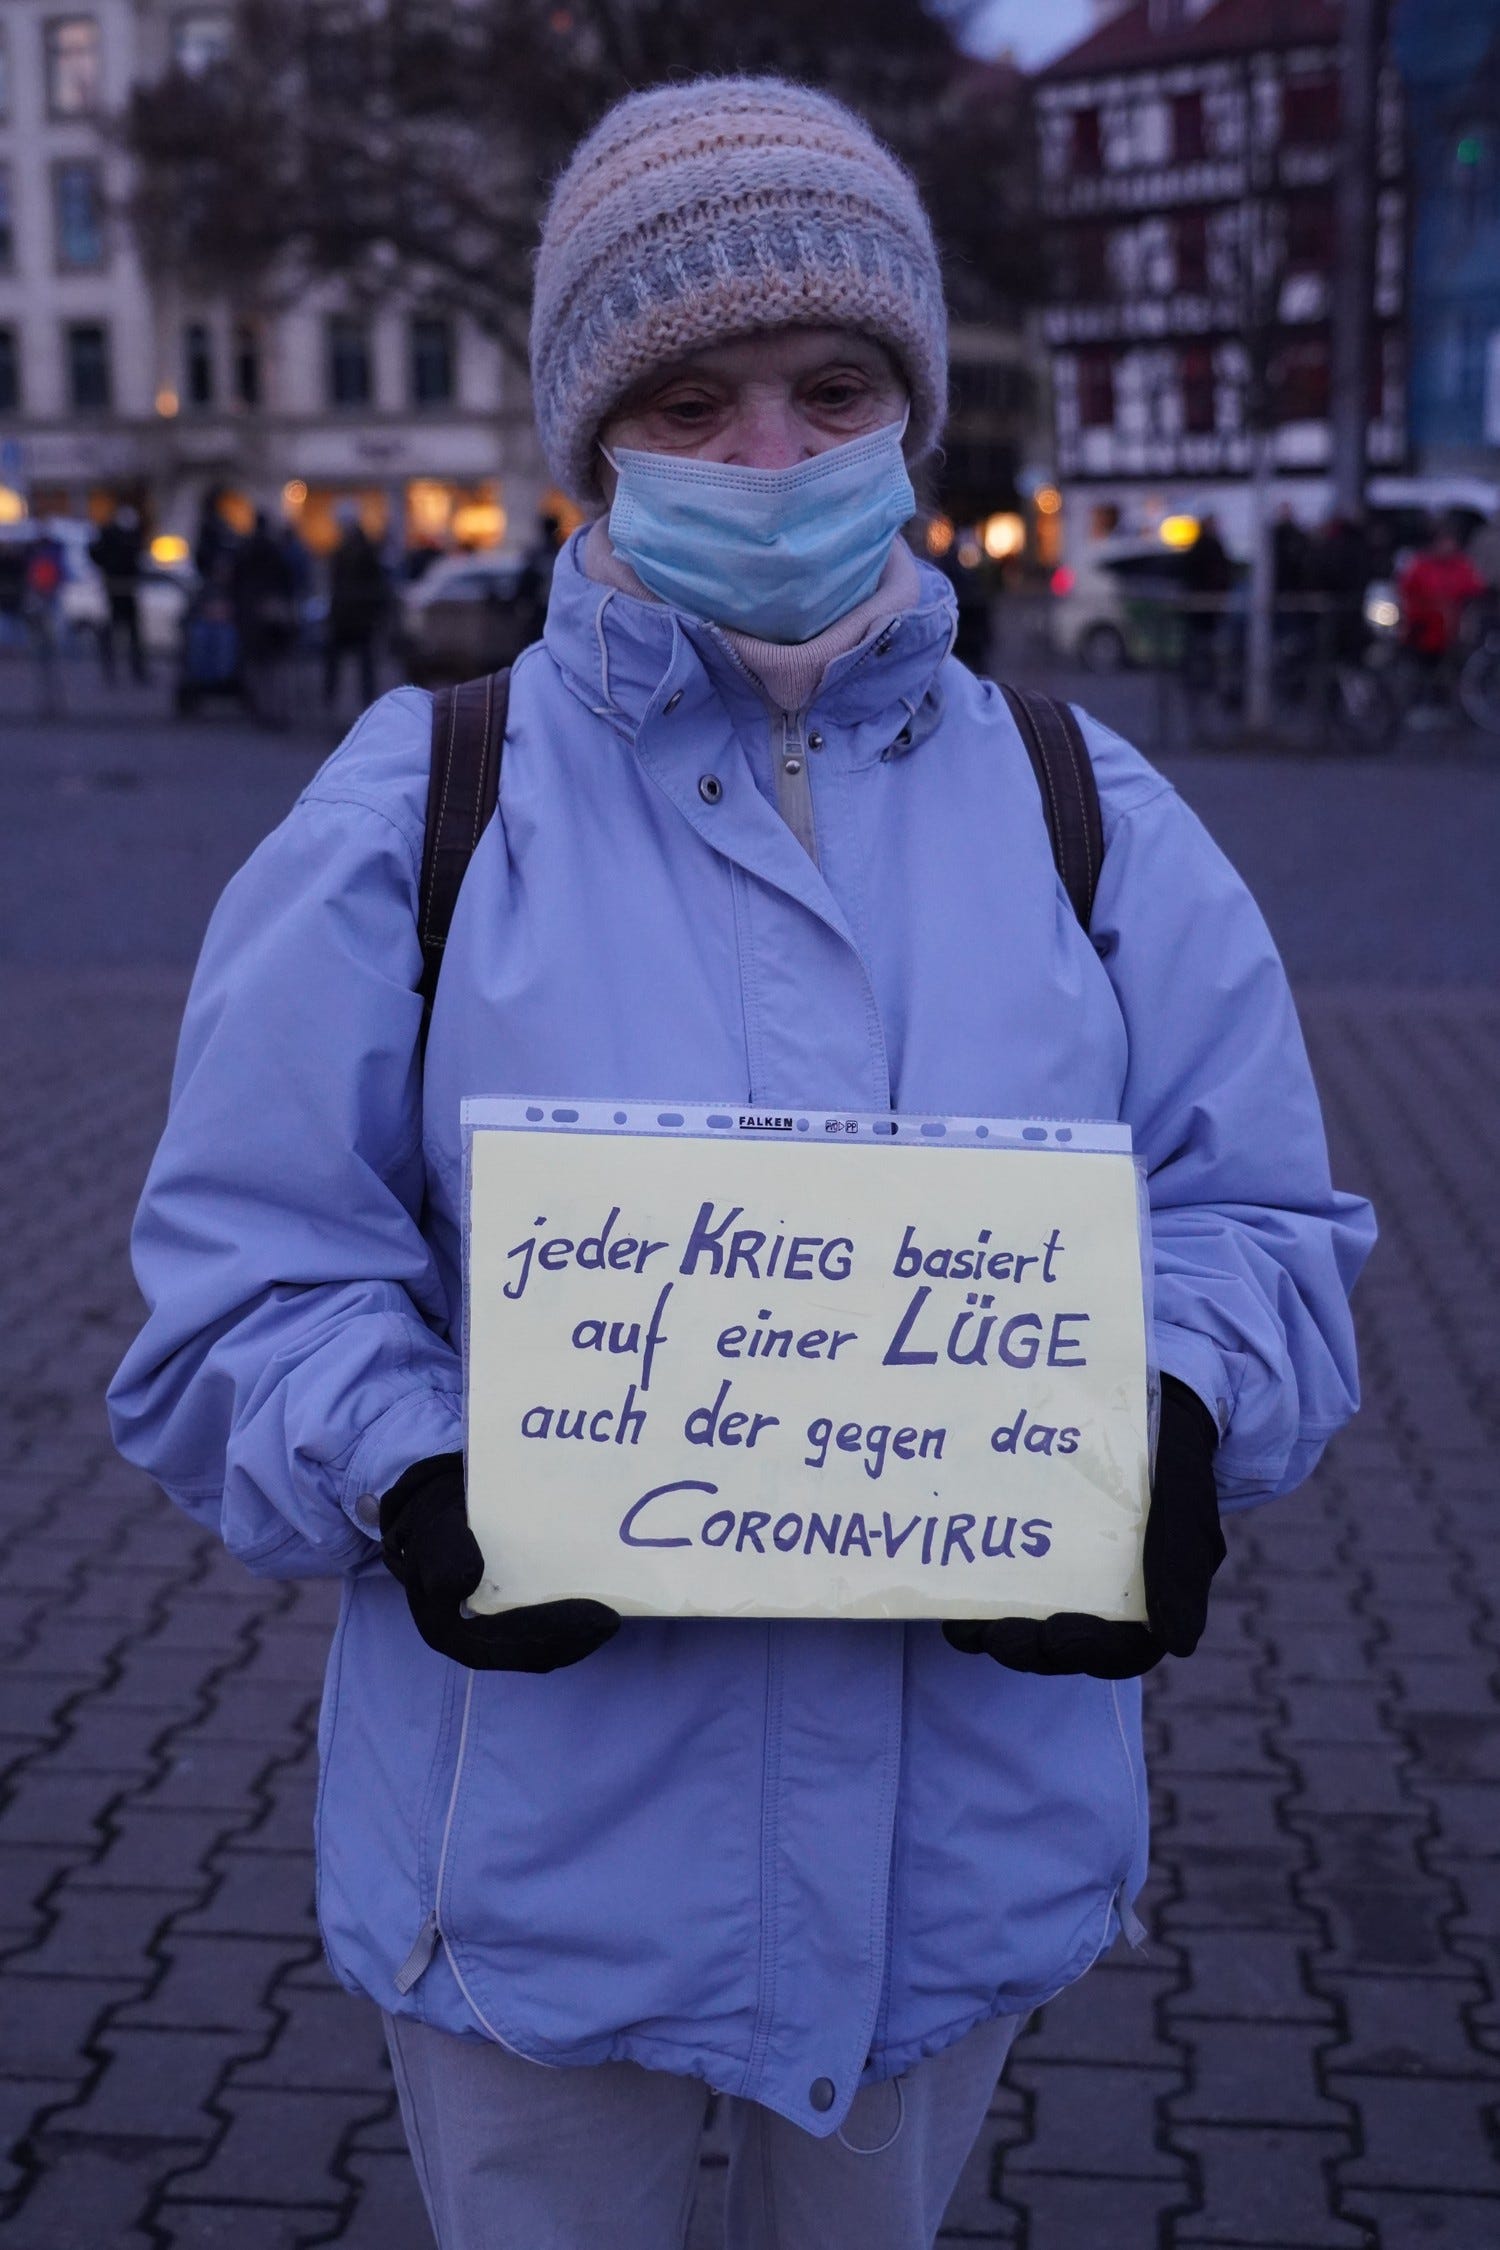 FALKEN
PP
jeder KRIEG basiert
auf einer LÜGE
auch der gegen das
CORONA-VIRUS